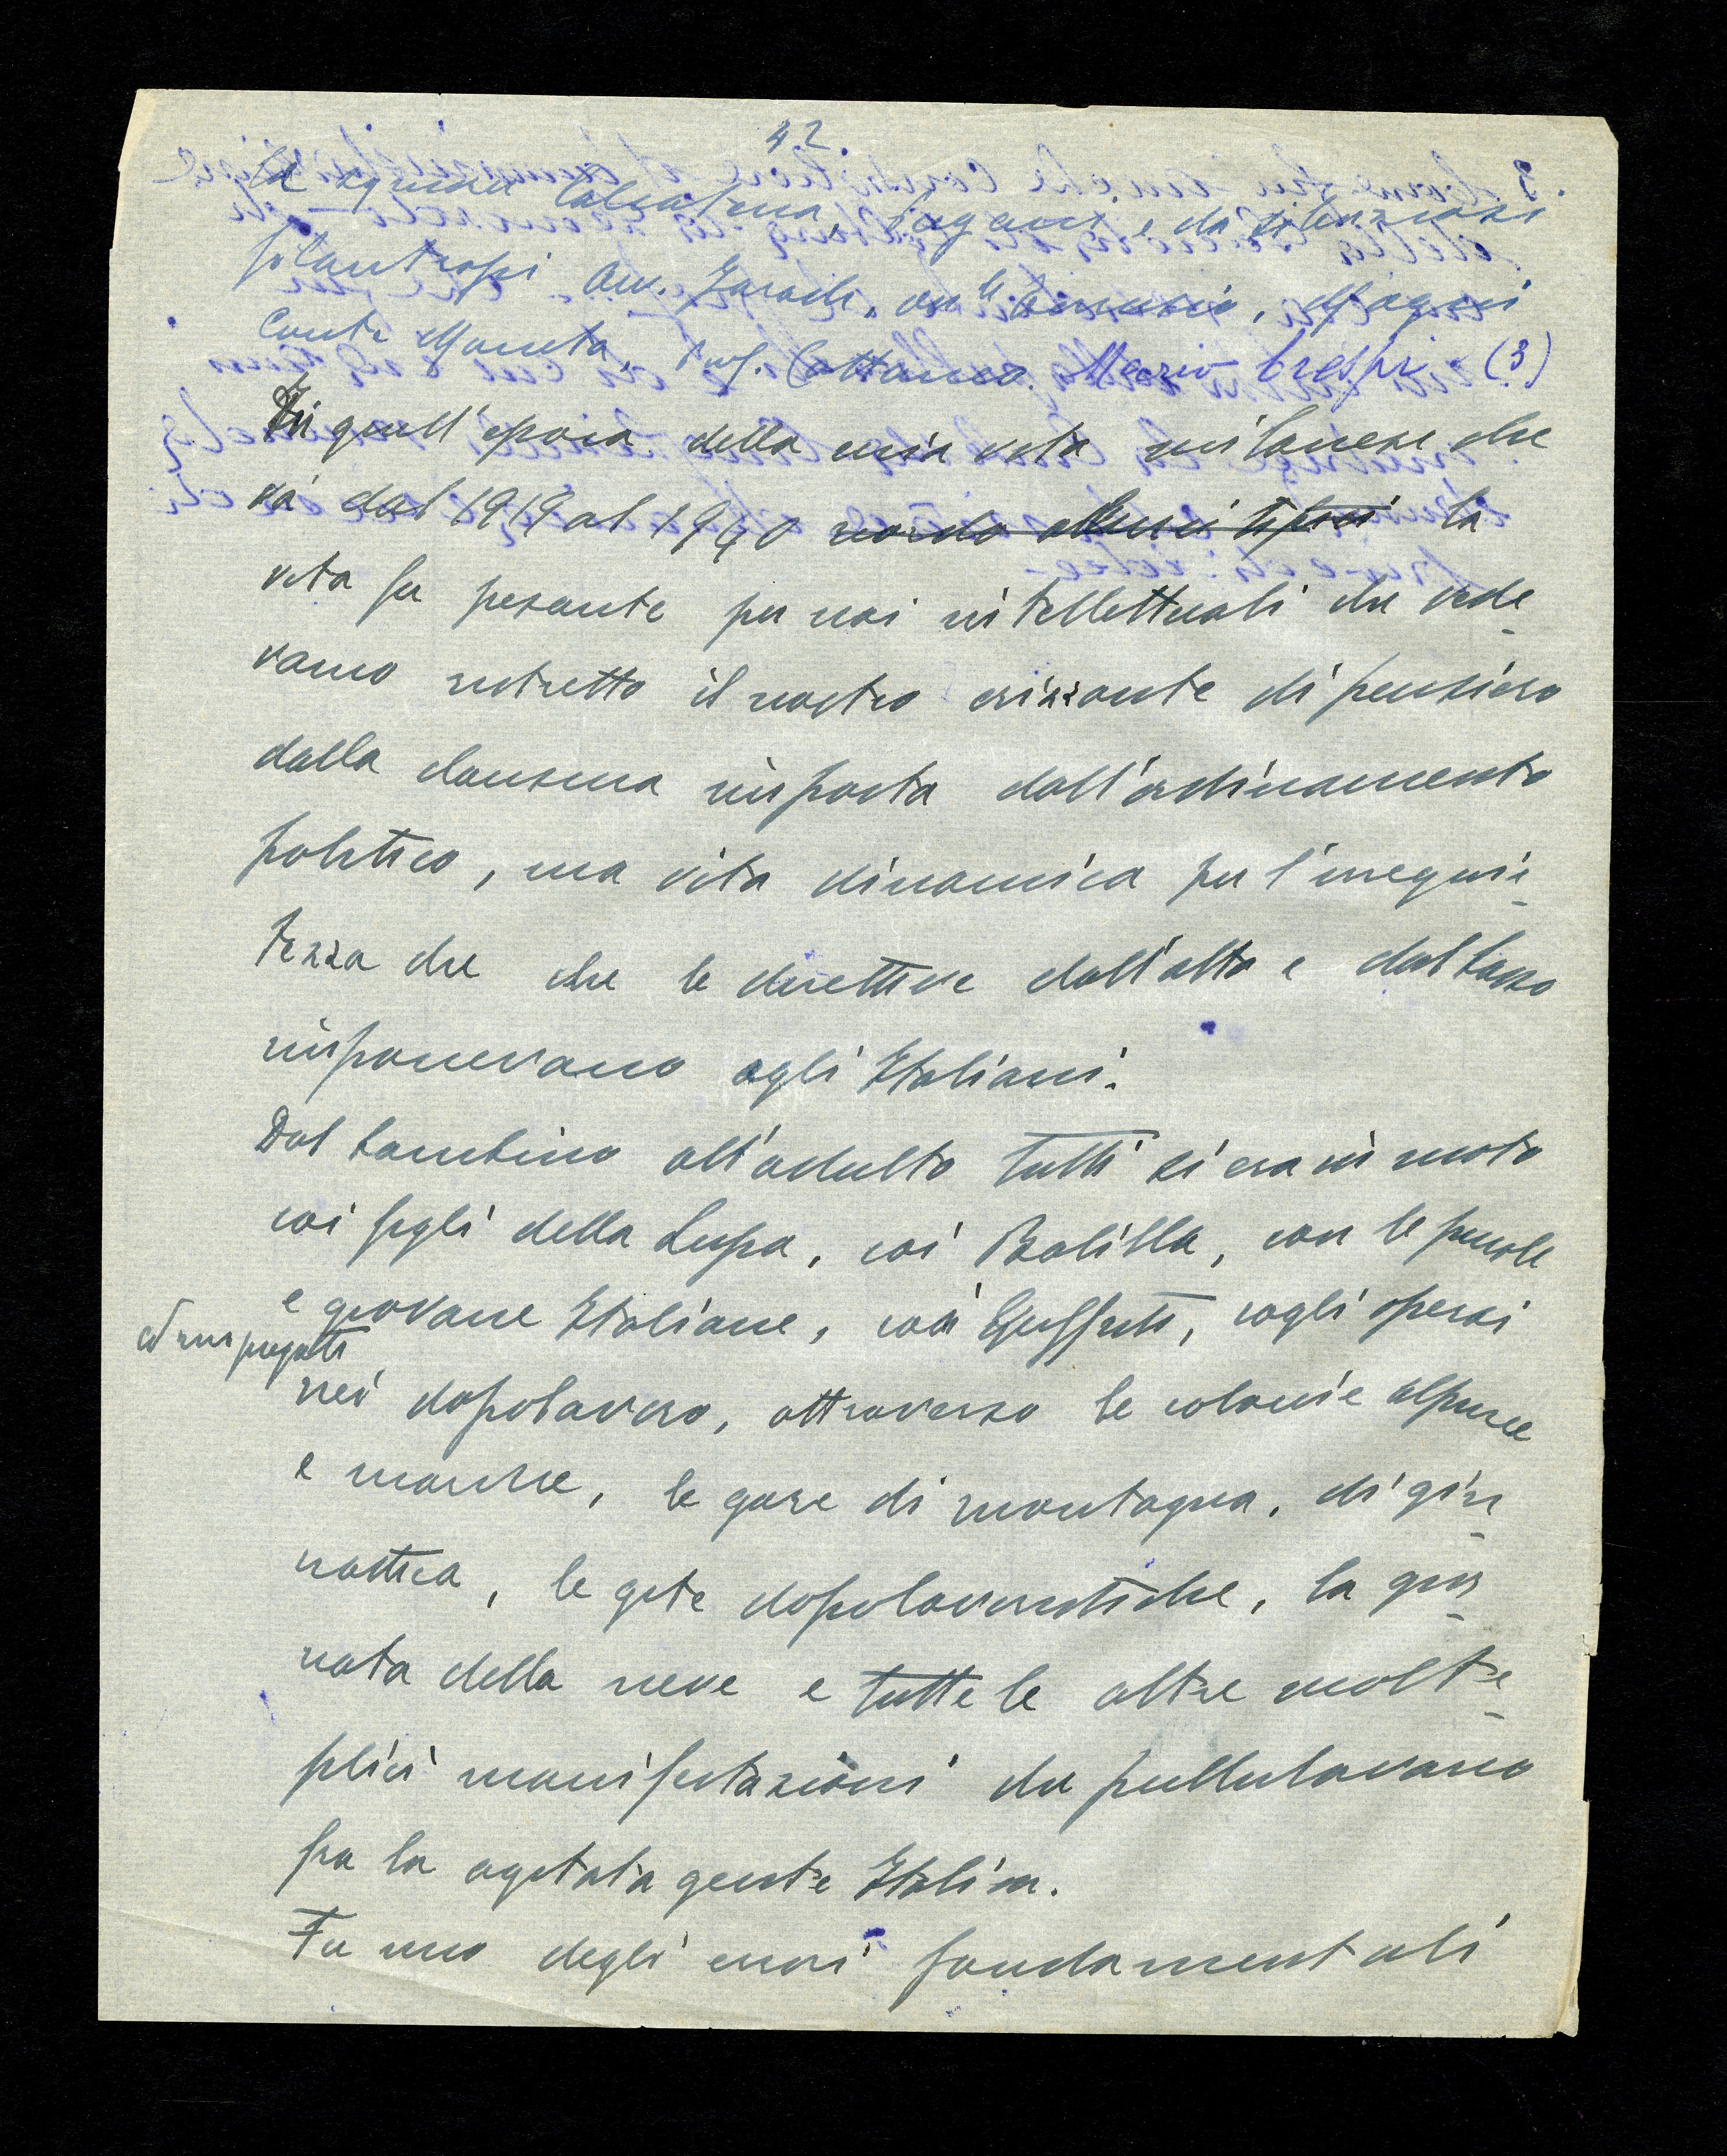 42
la signora Calcaterra, Pagani e da silenziosi
filantropi Avv. Jarach, on.le Amerio, Magni
Conte Moneta, Prof. Cattaneo. Mario Crespi (3)
In quell'epoca della mia vita milanese che
và dal 1919 al 1940 ricordo alcuni tipici la
vita fu pesante per noi intellettuali che vede-
vamo ristretto il nostro orizzonte di pensiero
dalla clausura imposta dall'ordinamento
politico, ma vita dinamica per l'irrequie-
tezza che che le direttive dall'alto e dal basso
imponevano agli Italiani.
Dal bambino all'adulto tutti si era in moto
coi figli della Lupa, coi Balilla, con le piccole
e giovane Italiane, coi Guffisti, cogli operai
ed impiegati
nei dopolavoro, attraverso le colonie alpine
e marine, le gare di montagna, di gin-
nastica, le gite dopolavoristiche, la gior-
nata della neve e tutte le altre molte-
plici manifestazioni che pullulavano
fra la agitata gente Italica.
Fu uno degli errori fondamentali